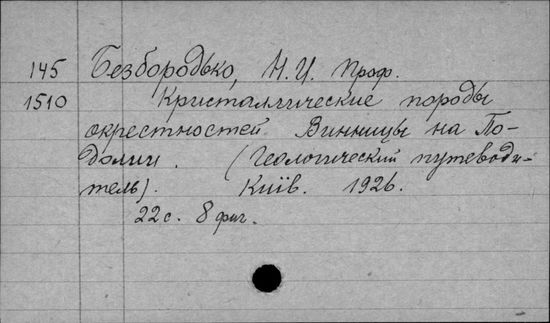 145 Безбородько, Н.И. Проф.
1510 Кристаллические породы
окрестностей Винницы на По-
долии. (Геологический путеводи-
тель). Київ. 1926.
22 с. 8 фиг.